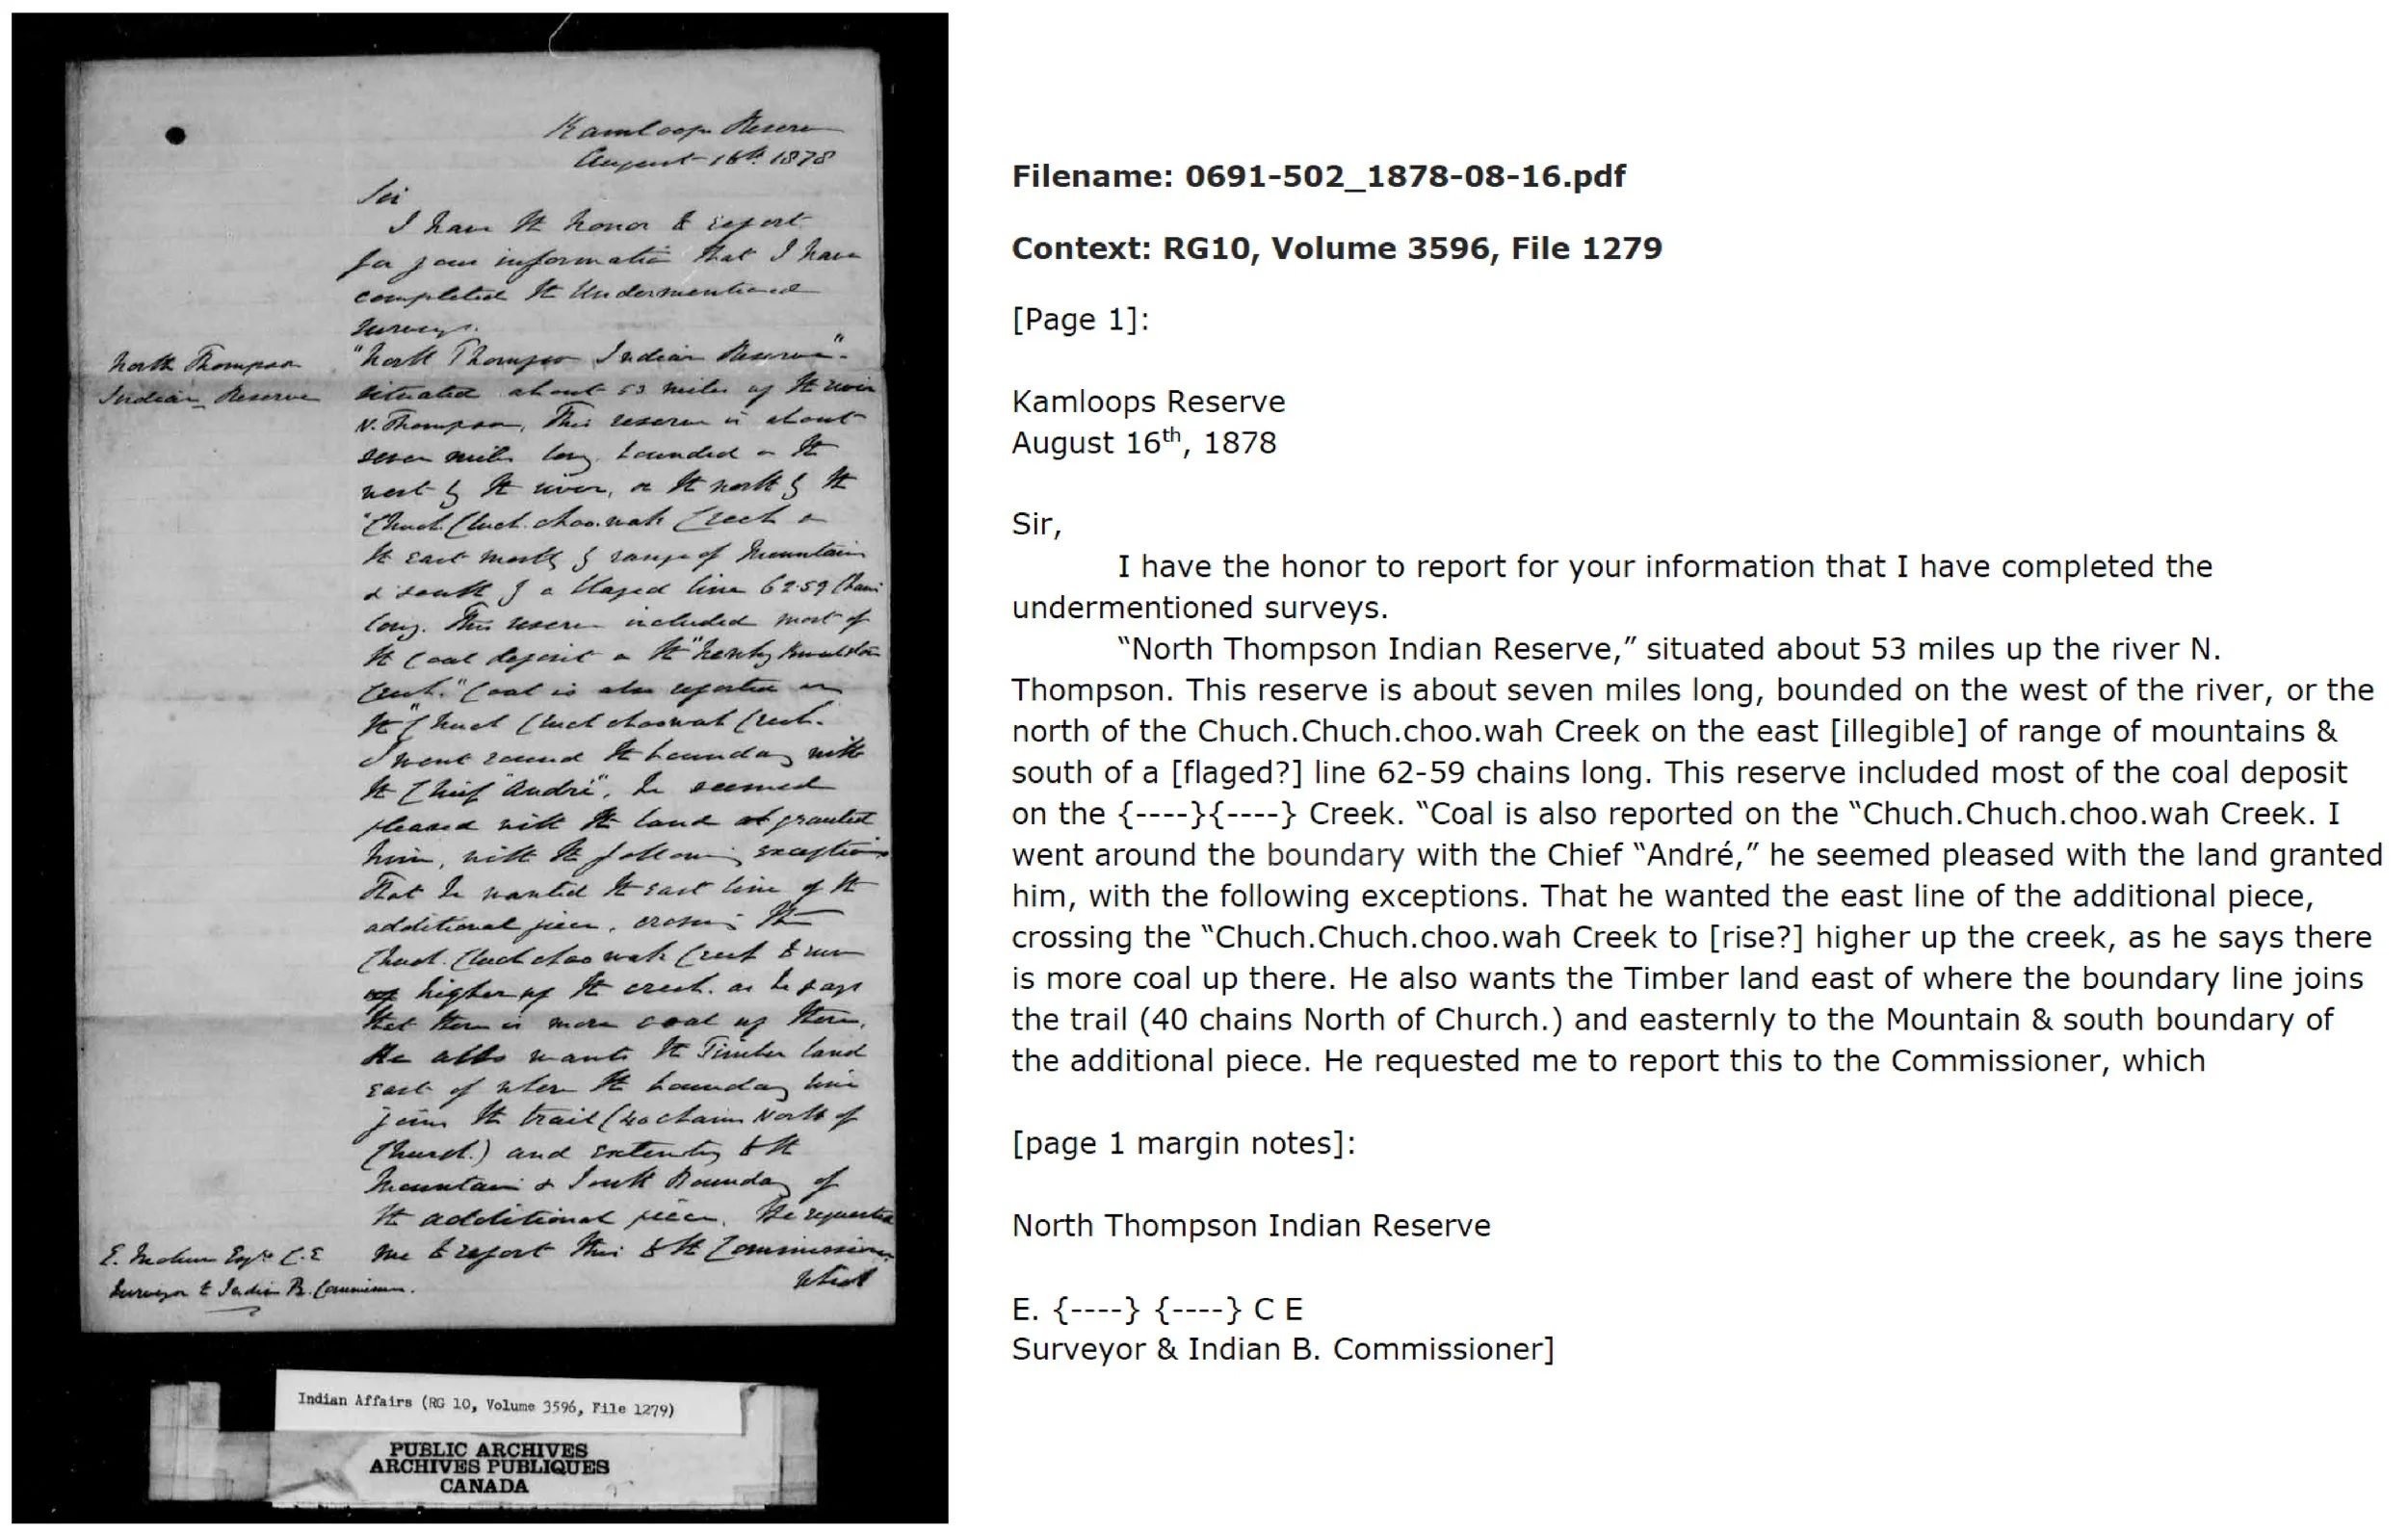 Kamloops Reserve
August 16th 1878
Sir
I have the honor to report
for your information that I have
completed the Undermentioned
surveys.
North Thompson
Indian Reserve
"North Thompson Indian Reserve"-
situated about 53 miles up the river
N. Thompson, This reserve is about
seven miles long, bounded on the
west by the river, on the north by the
"Chuch.Chuch.choo.wah Creek on
the east mostly by range of Mountains
& south by a blazed line 62.59 Chains
long. This reserve included most of
the Coal deposit on the
Creek." Coal is also reported on
the "Chuch Chuch choowah Creek.
I went round the boundary with
the Chief "André", he seemed
pleased with the land granted
him, with the following exceptions
That he wanted the east line of the
additional piece, crossing the
Chuch.Chuch choo wah Creek to run
higher up the creek. as he says
that there is more coal up there.
He also wants the Timber land
east of where the boundary line
joins the trail (40 chains North of
Church.) and extending to the
Mountain & South Boundary of
the additional piece. He requested
me to report this to the Commissioner.
which
E. Mohun Esqre C.E
Surveyor to Indian R. Commission.
Indian Affairs (RG 10, Volume 3596, File 1279)
PUBLIC ARCHIVES
ARCHIVES PUBLIQUES
CANADA
Filename: 0691-502_1878-08-16.pdf
Context: RG10, Volume 3596, File 1279
[Page 1]:
Kamloops Reserve
August 16th, 1878
Sir,
I have the honor to report for your information that I have completed the
undermentioned surveys.
“North Thompson Indian Reserve,” situated about 53 miles up the river N.
Thompson. This reserve is about seven miles long, bounded on the west of the river, or the
north of the Chuch.Chuch.choo.wah Creek on the east [illegible] of range of mountains &
south of a [flaged?] line 62-59 chains long. This reserve included most of the coal deposit
on the {----}{----} Creek. “Coal is also reported on the “Chuch.Chuch.choo.wah Creek. I
went around the boundary with the Chief “André,” he seemed pleased with the land granted
him, with the following exceptions. That he wanted the east line of the additional piece,
crossing the “Chuch.Chuch.choo.wah Creek to [rise?] higher up the creek, as he says there
is more coal up there. He also wants the Timber land east of where the boundary line joins
the trail (40 chains North of Church.) and easternly to the Mountain & south boundary of
the additional piece. He requested me to report this to the Commissioner, which
[page 1 margin notes]:
North Thompson Indian Reserve
E. {----} {----} C E
Surveyor & Indian B. Commissioner]